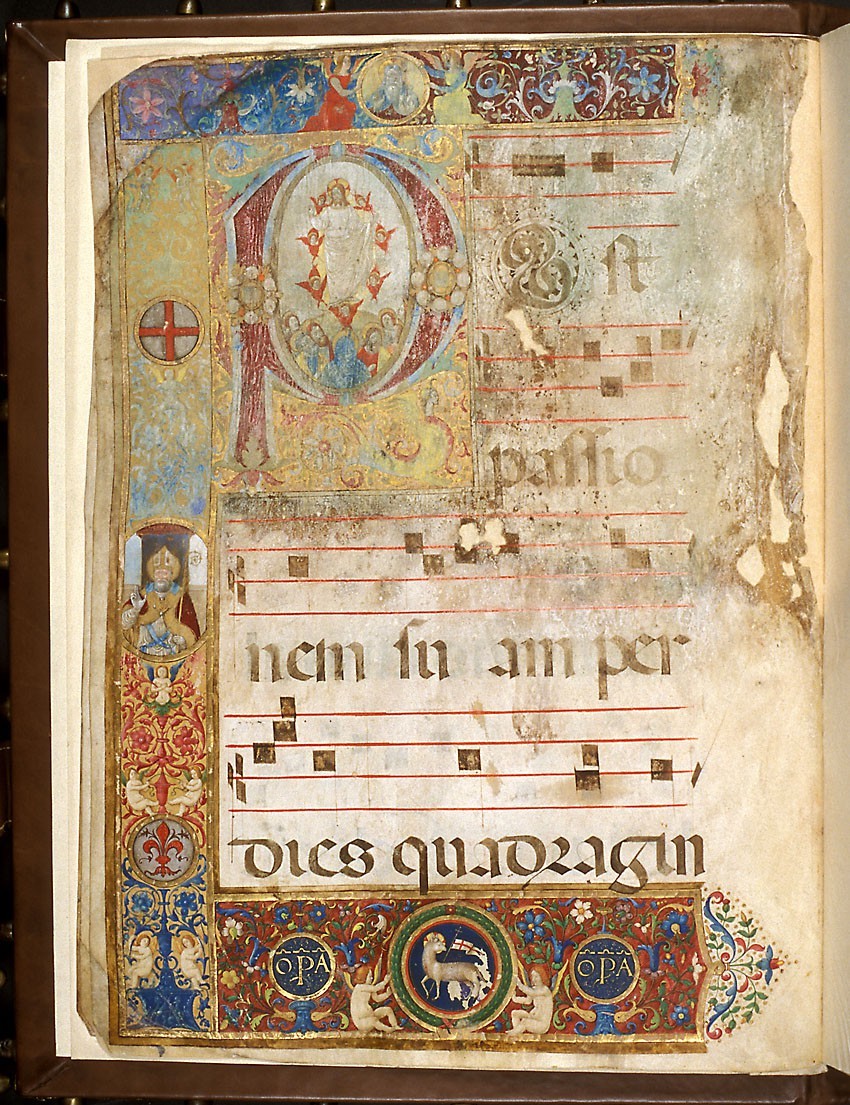 POst
passio
nem su am per
dies quadragin
OPA OPA